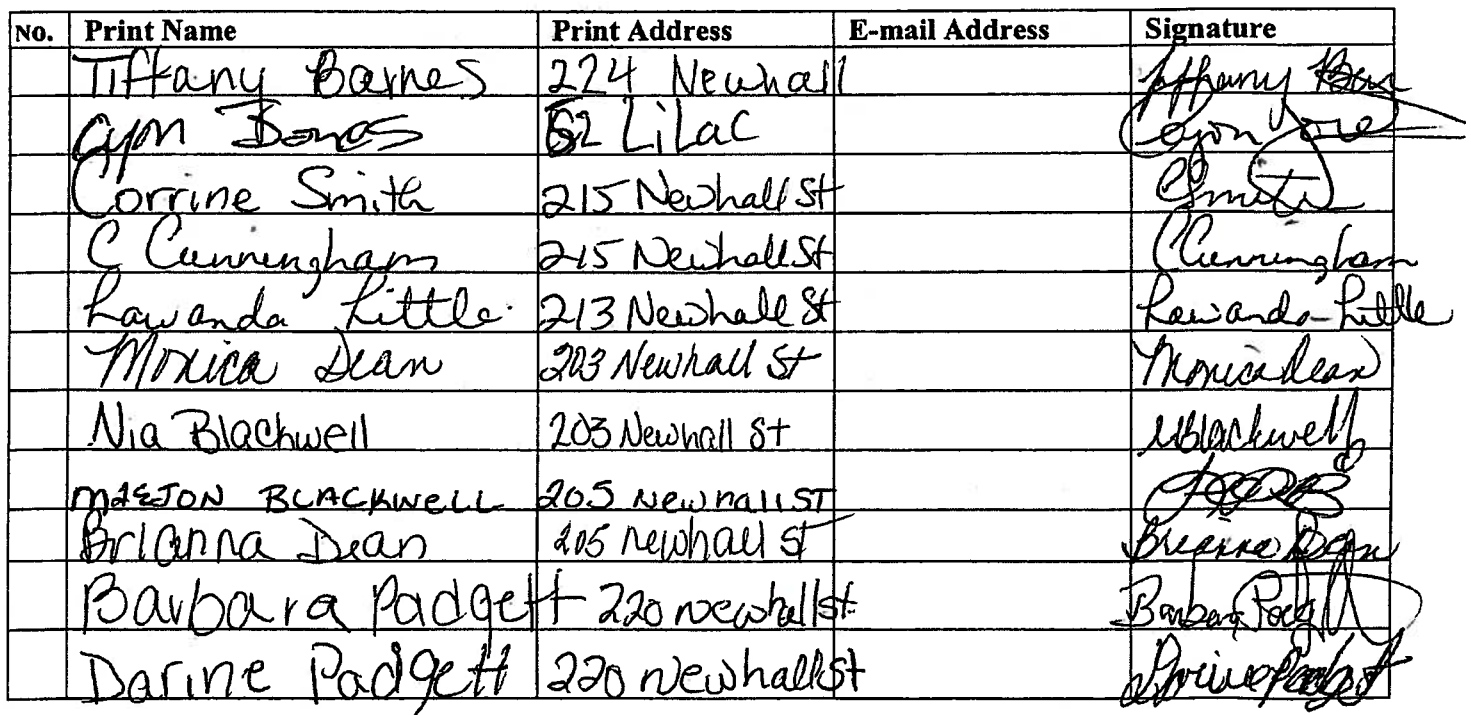 No. Print Name Print Address E-mail Address Signature
Tiffany Barnes 224 Newhall Tiffany
62 Lilac
Corrine Smith 215 Newhall St Smith
C Cunningham 215 Newhall St C Cunningham
Lawanda Little 213 Newhall St Lawanda Little
Monica Dean 203 Newhall St Monica Dean
Nia Blackwell 203 Newhall St NBlackwell
BLACKWELL 205 Newhall ST
Brianna Dean 205 newhall st Breanna Dean
Barbara Padgett 220 newhall st Barbara Padgett
Darine Padgett 220 newhall st